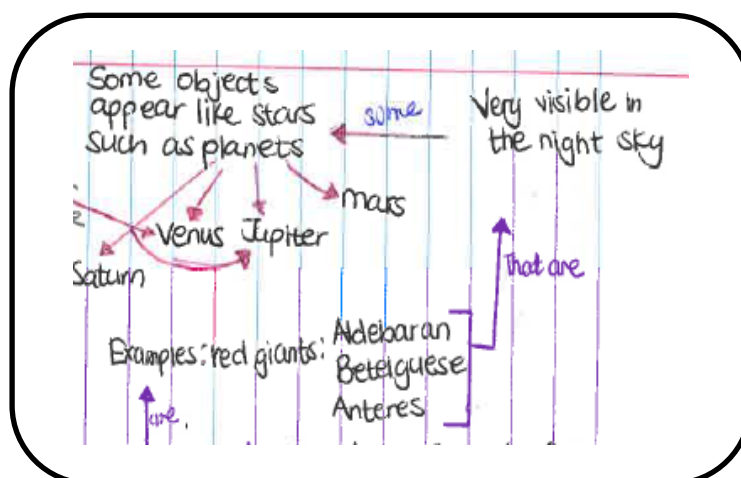 Some objects
appear like stars
such as planets
some
Very visible in
the night sky
mars
Venus Jupiter
Saturn
That are
Examples: red giants:
Aldebaran
Beteiguese
Anteres
are.